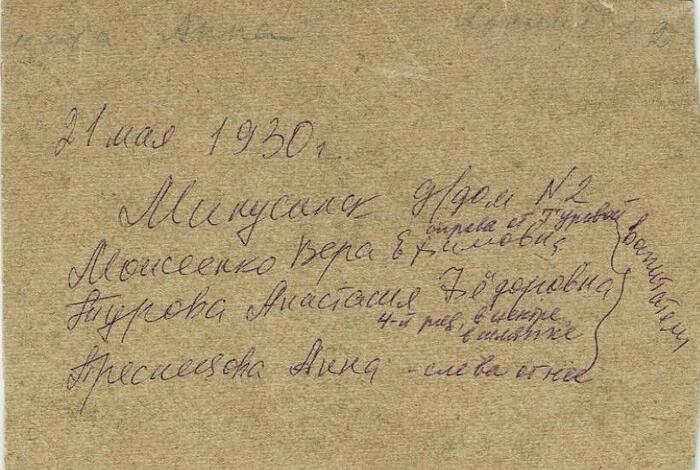 "Анна"
2
21 мая 1930 г.
Минусинск д/дом N2
справа от Туровой
Моисеенко Вера Ефимовна
Турова Анастасия Фёдоровна
4-й ряд, в центре,
в шляпке
Анна - слева от неё
воспитатели